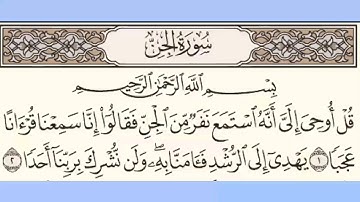 سُورَةُ الجِنِّ
بِسْمِ ٱللَّهِ ٱلرَّحْمَٰنِ ٱلرَّحِيمِ
قُلْ أُوحِىَ إِلَىَّ أَنَّهُ ٱسْتَمَعَ نَفَرٌ مِّنَ ٱلْجِنِّ فَقَالُوٓا۟ إِنَّا سَمِعْنَا قُرْءَانًا
عَجَبًا ١ يَهْدِىٓ إِلَى ٱلرُّشْدِ فَـَٔامَنَّا بِهِۦ ۖ وَلَن نُّشْرِكَ بِرَبِّنَآ أَحَدًا ٢